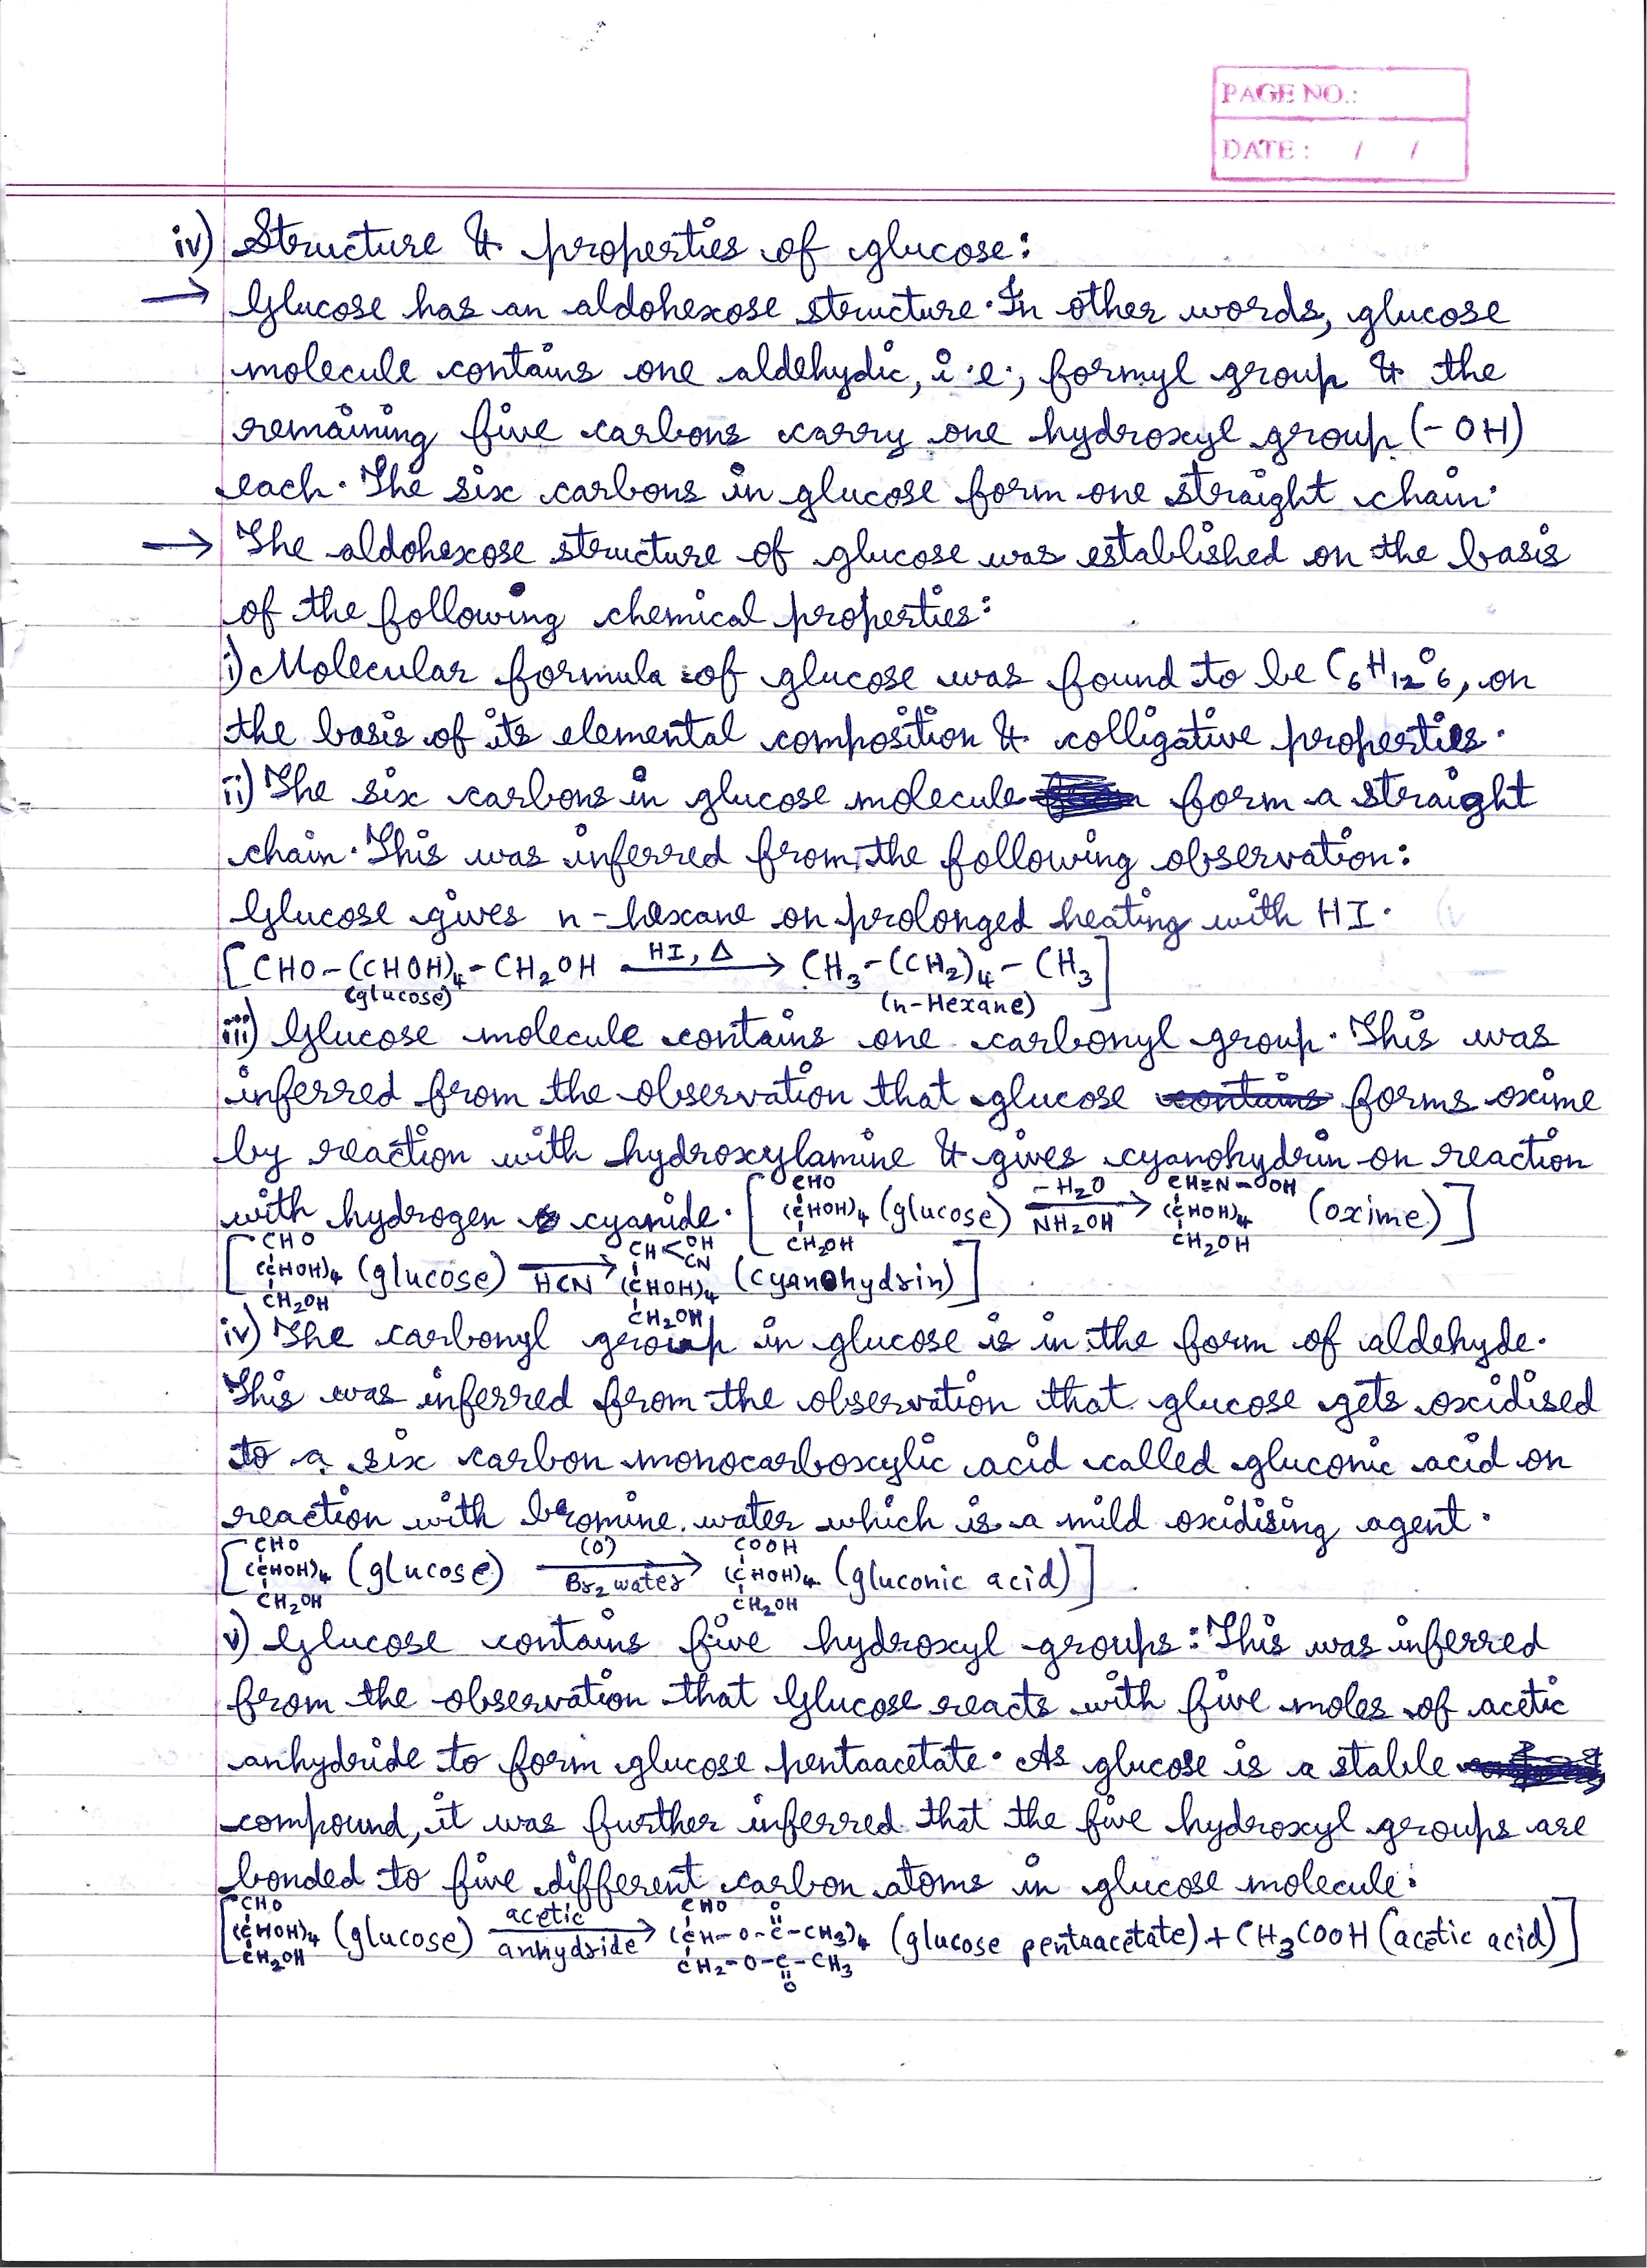 PAGE NO.:
DATE : / /
iv) Structure & properties of glucose:
→ Glucose has an aldohexose structure. In other words, glucose
molecule contains one aldehydic, i.e., formyl group & the
remaining five carbons carry one hydroxyl group (-OH)
each. The six carbons in glucose form one straight chain.
→ The aldohexose structure of glucose was established on the basis
of the following chemical properties:
i) Molecular formula of glucose was found to be C₆H₁₂O₆, on
the basis of its elemental composition & colligative properties.
ii) The six carbons in glucose molecule form a straight
chain. This was inferred from the following observation:
Glucose gives n-hexane on prolonged heating with HI.
[CHO-(CHOH)₄-CH₂OH HI, Δ → CH₃-(CH₂)₄-CH₃]
(glucose) (n-Hexane)
iii) Glucose molecule contains one carbonyl group. This was
inferred from the observation that glucose contains forms oxime
by reaction with hydroxylamine & gives cyanohydrin on reaction
with hydrogen cyanide. [CHO (CHOH)₄ CH₂OH (glucose) -H₂O NH₂OH → CH=N-OH (CHOH)₄ CH₂OH (oxime)]
[CHO (CHOH)₄ CH₂OH (glucose) HCN → CH<OH CN (CHOH)₄ CH₂OH (cyanohydrin)]
iv) The carbonyl group in glucose is in the form of aldehyde.
This was inferred from the observation that glucose gets oxidised
to a six carbon monocarboxylic acid called gluconic acid on
reaction with bromine water which is a mild oxidising agent.
[CHO (CHOH)₄ CH₂OH (glucose) (O) Br₂ water → COOH (CHOH)₄ CH₂OH (gluconic acid)]
v) Glucose contains five hydroxyl groups: This was inferred
from the observation that Glucose reacts with five moles of acetic
anhydride to form glucose pentaacetate. As glucose is a stable
compound, it was further inferred that the five hydroxyl groups are
bonded to five different carbon atoms in glucose molecule:
[CHO (CHOH)₄ CH₂OH (glucose) acetic anhydride → CHO (CH-O-C(=O)-CH₃)₄ CH₂-O-C(=O)-CH₃ (glucose pentaacetate) + CH₃COOH (acetic acid)]